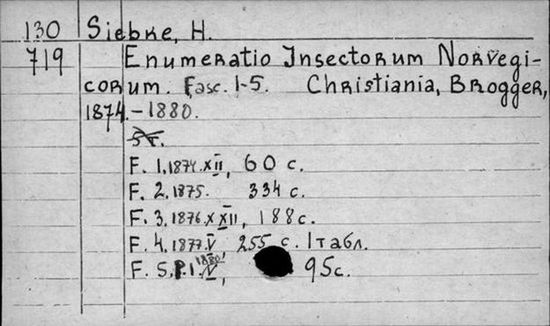 130 Siebke, H.
719 Enumeratio Insectorum Norvegi-
corum. Fasc. 1-5. Christiania, Brogger,
1874.-1880.
5 т.
F. 1, 1874. XII, 60 с.
F. 2, 1875. 334 с.
F. 3, 1876. XXII, 188 с.
F. 4, 1877. V 255 с. 1 табл.
F. 5, P. I. 1880. IV, 95 с.